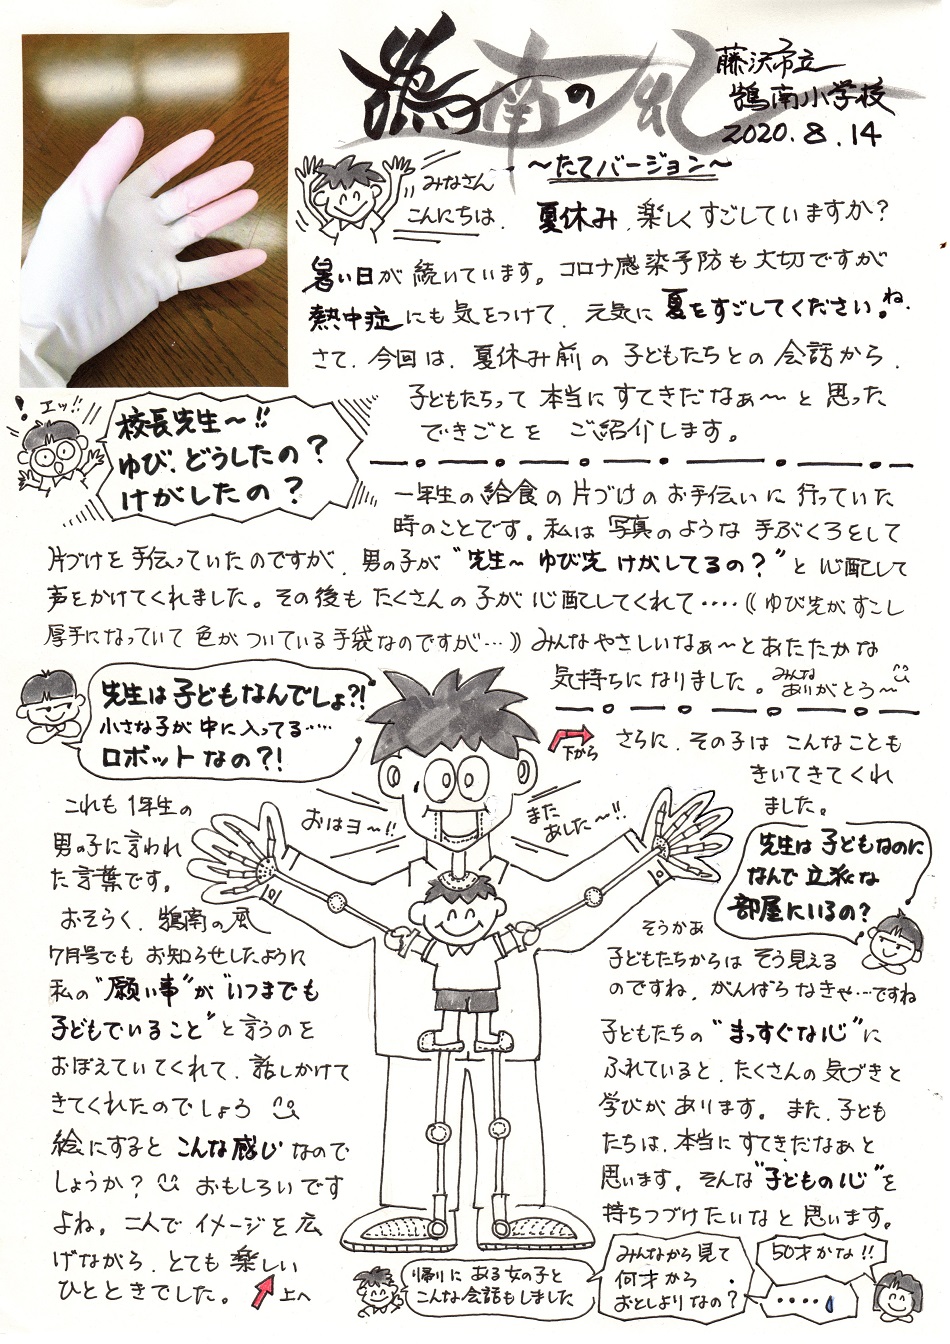 鵠南の風
藤沢市立
鵠南小学校
2020.8.14
～たてバージョン～
みなさん
こんにちは、夏休み、楽しくすごしていますか？
暑い日が続いています。コロナ感染予防も大切ですが
熱中症にも気をつけて、元気に夏をすごしてくださいね。
さて、今回は、夏休み前の子どもたちとの会話から、
子どもたちって本当にすてきだなぁ～と思った
できごとをご紹介します。
！エッ!!
校長先生～!!
ゆび、どうしたの？
けがしたの？
一年生の給食の片づけのお手伝いに行っていた
時のことです。私は写真のような手ぶくろをして
片づけを手伝っていたのですが、男の子が“先生～ゆび先けがしてるの？”と心配して
声をかけてくれました。その後もたくさんの子が心配してくれて････((ゆび先がすこし
厚手になっていて色がついている手袋なのですが…))みんなやさしいなぁ～とあたたかな
気持ちになりました。みんなありがとう～
先生は子どもなんでしょ?!
小さな子が中に入ってる‥‥
ロボットなの?!
これも1年生の
男の子に言われ
た言葉です。
おそらく、鵠南の風
7月号でもお知らせしたように
私の“願い事”が“いつまでも
子どもでいること”と言うのを
おぼえていてくれて、話しかけて
きてくれたのでしょう
絵にするとこんな感じなので
しょうか？おもしろいです
よね。二人でイメージを広
げながら、とても楽しい
ひとときでした。
上へ
おはヨ～!!
また
あした～!!
下から
さらに、その子はこんなことも
きいてきてくれ
ました。
先生は子どもなのに
なんで立派な
部屋にいるの？
そうかぁ
子どもたちからはそう見える
のですね。がんばらなきゃ…ですね
子どもたちの“まっすぐな心”に
ふれていると、たくさんの気づきと
学びがあります。また、子ども
たちは、本当にすてきだなぁと
思います。そんな“子どもの心”を
持ちつづけたいなと思います。
帰りにある女の子と
こんな会話もしました
みんなから見て
何才から
おとしよりなの？
50才かな!!
････